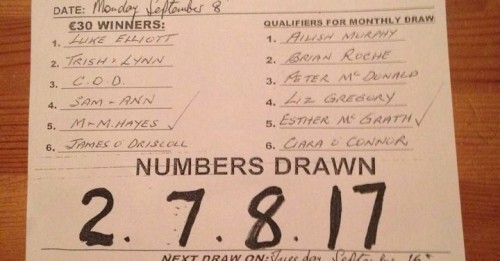 DATE: Monday September 8
€30 WINNERS:
1. LUKE ELLIOTT
2. TRISH + LYNN
3. C.O.D.
4. SAM + ANN
5. M+M. HAYES
6. JAMES O DRISCOLL
QUALIFIERS FOR MONTHLY DRAW
1. AILISH MURPHY
2. BRIAN ROCHE
3. PETER McDONALD
4. LIZ GREGORY
5. ESTHER McGRATH
6. CIARA O CONNOR
NUMBERS DRAWN
2. 7. 8. 17
NEXT DRAW ON: Tuesday September 16th